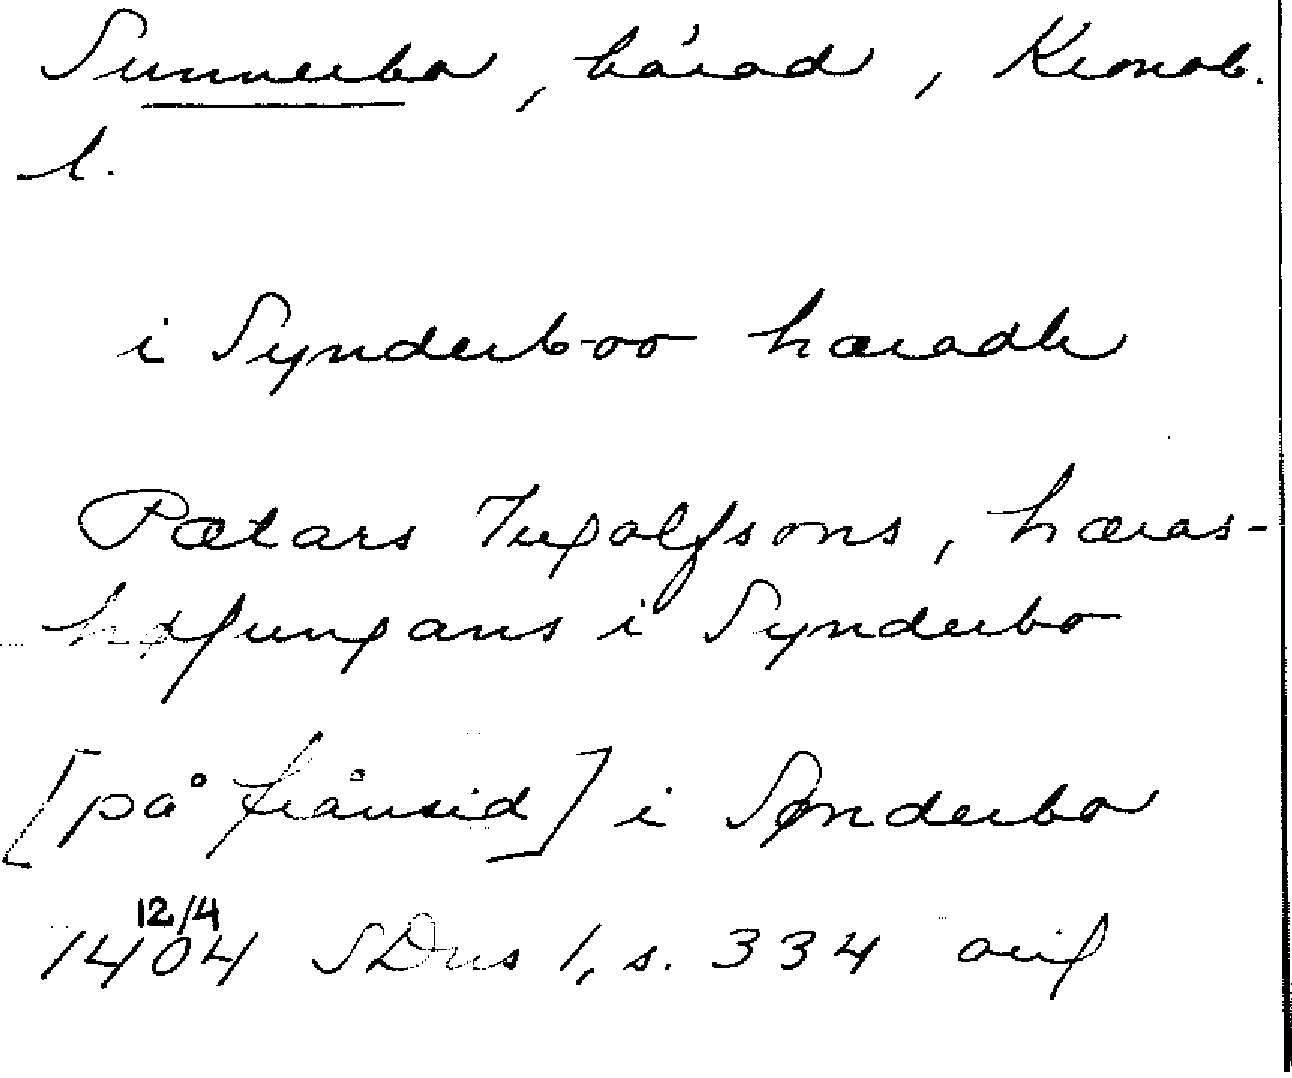 Sunnerbo, härad, Kronob.
l.
i Synderboo hæradh
Pætars Ingolfsons, hæras-
høfungans i Synderbo
[på frånsid] i Sønderbo
12/4
1404 SDns 1, s. 334 orig